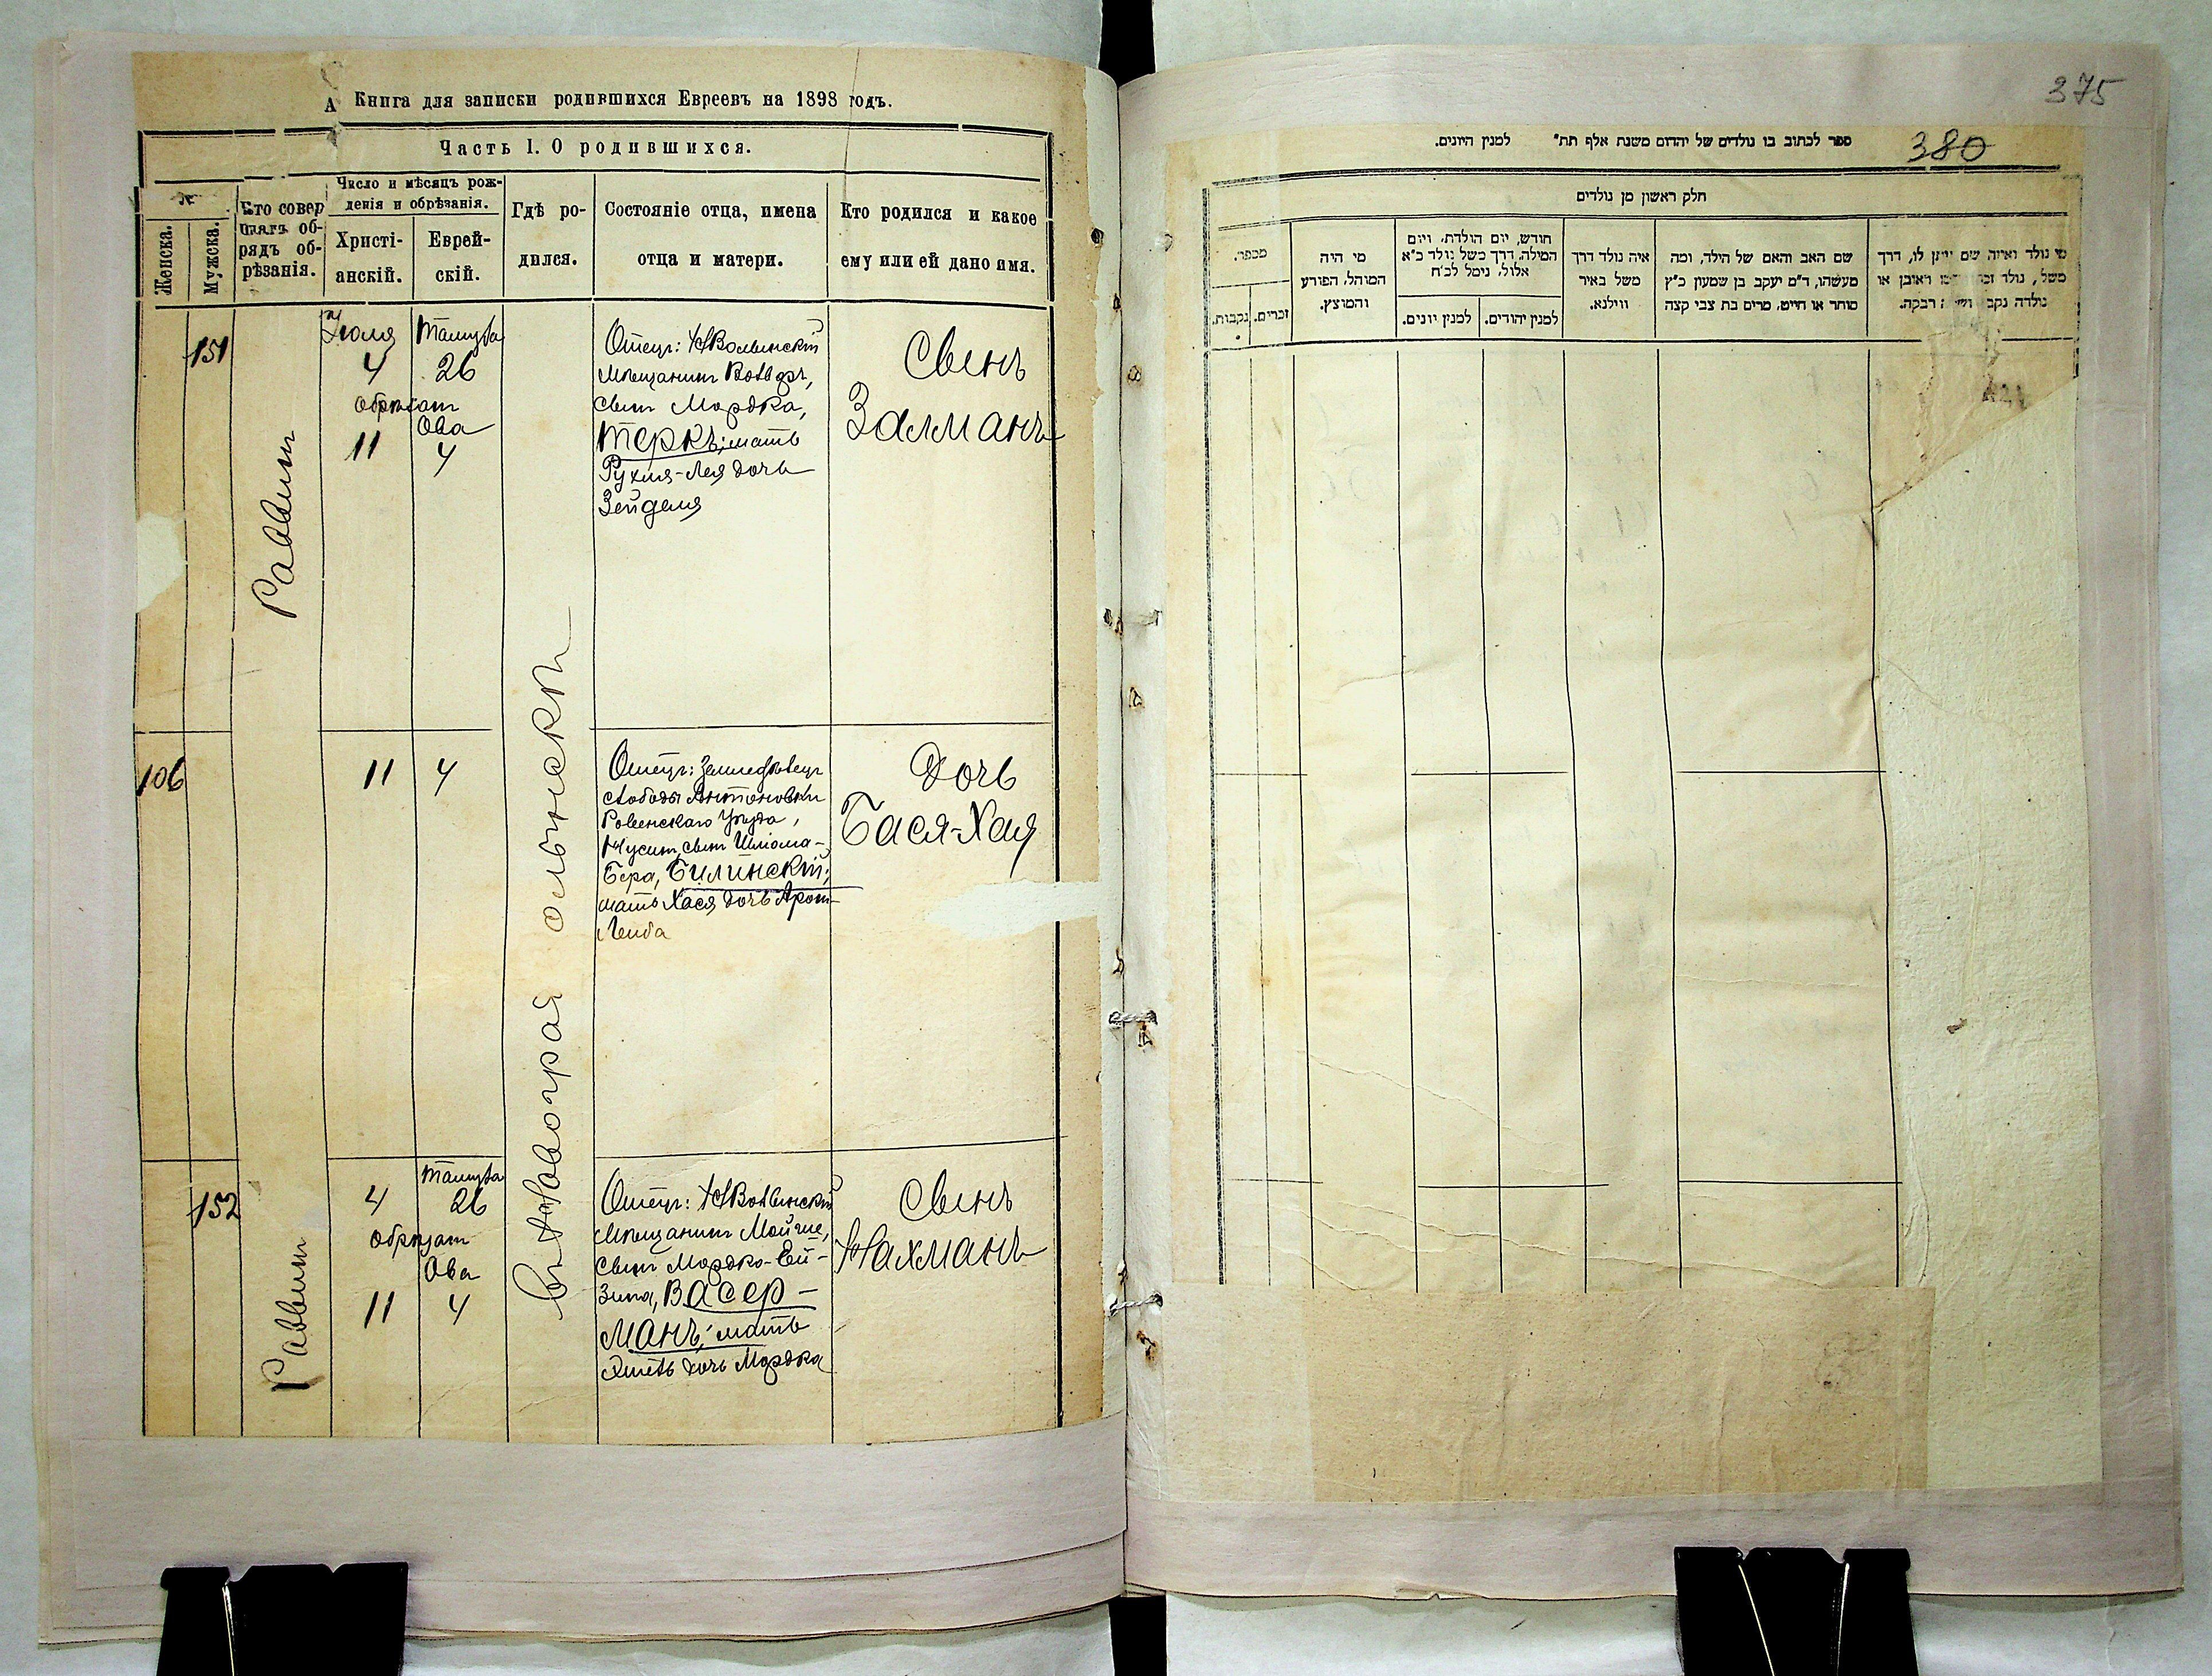 А Книга для записки родившихся Евреевъ на 1898 годъ.
Часть I. О родившихся.
№
Женска.
Мужска.
Кто совер
шалъ об-
рядъ об-
рѣзанія.
Число и мѣсяцъ рож-
денія и обрѣзанія.
Христі-
анскій.
Еврей-
скій.
Гдѣ ро-
дился.
Состояніе отца, имена
отца и матери.
Кто родился и какое
ему или ей дано имя.
151
Раввинъ
Іюля
4
обрѣзанъ
11
Тамуза
26
Ова
4
Отецъ: Н Волынскій
мѣщанинъ
сынъ Мордка,
Теркъ; мать
Рухля-Лея дочь
Зейделя
Сынъ
Залманъ
106
11
4
Отецъ: Земледѣлецъ
слободы Антоновки
Ровенскаго уѣзда,
Нусинъ сынъ Шліома-
Бера, Билинскій;
мать Хася дочь Арон-
Лейба
Дочь
Бася-Хая
152
Раввинъ
4
обрѣзанъ
11
Тамуза
26
Ова
4
Отецъ: Н Волынскій
мѣщанинъ Мойше,
сынъ Мордко-Ей-
зика, Васер-
манъ; мать
дочь Мордка
Сынъ
Нахманъ
375
380
ספר לכתוב בו נולדים של יהדום משנת אלף תת״ למנין היונים.
חלק ראשון מן נולדים
מספר.
נקבות.
זכרים.
מי היה
המוהל, הפורע
והמוצץ.
חודש, יום הולדת, ויום
המילה, דרך משל נולד כ״א
אלול, נימל לכ״ח
למנין יונים.
למנין יהודים.
איה נולד דרך
משל באיר
ווילנא.
שם האב והאם של הילד, ומה
מעשהו, ד״מ יעקב בן שמעון כ״ץ
סוחר או חייט, מרים בת צבי קצה
מי נולד ואיזה שם ניתן לו, דרך
משל, נולד ראובן או
נולדה נקבה רבקה.